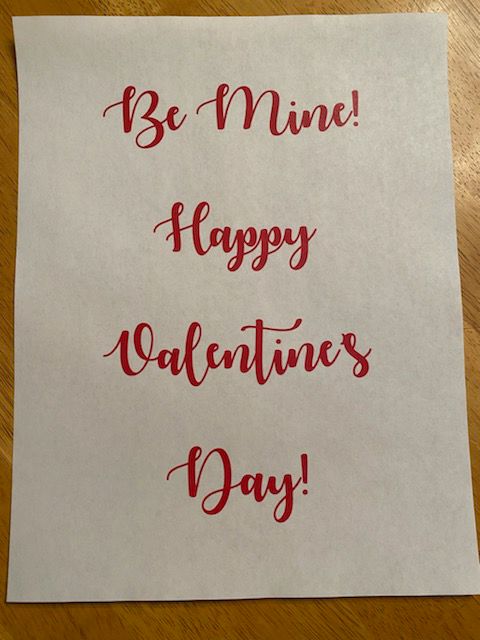 Be Mine!
Happy
Valentine's
Day!